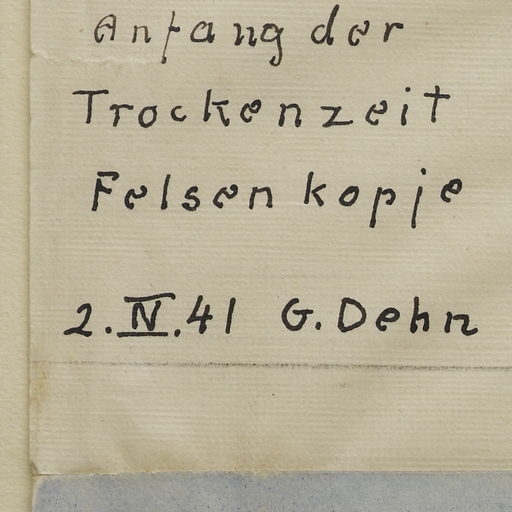 Anfang der
Trockenzeit
Felsenkopje
2.IV.41 G. Dehn